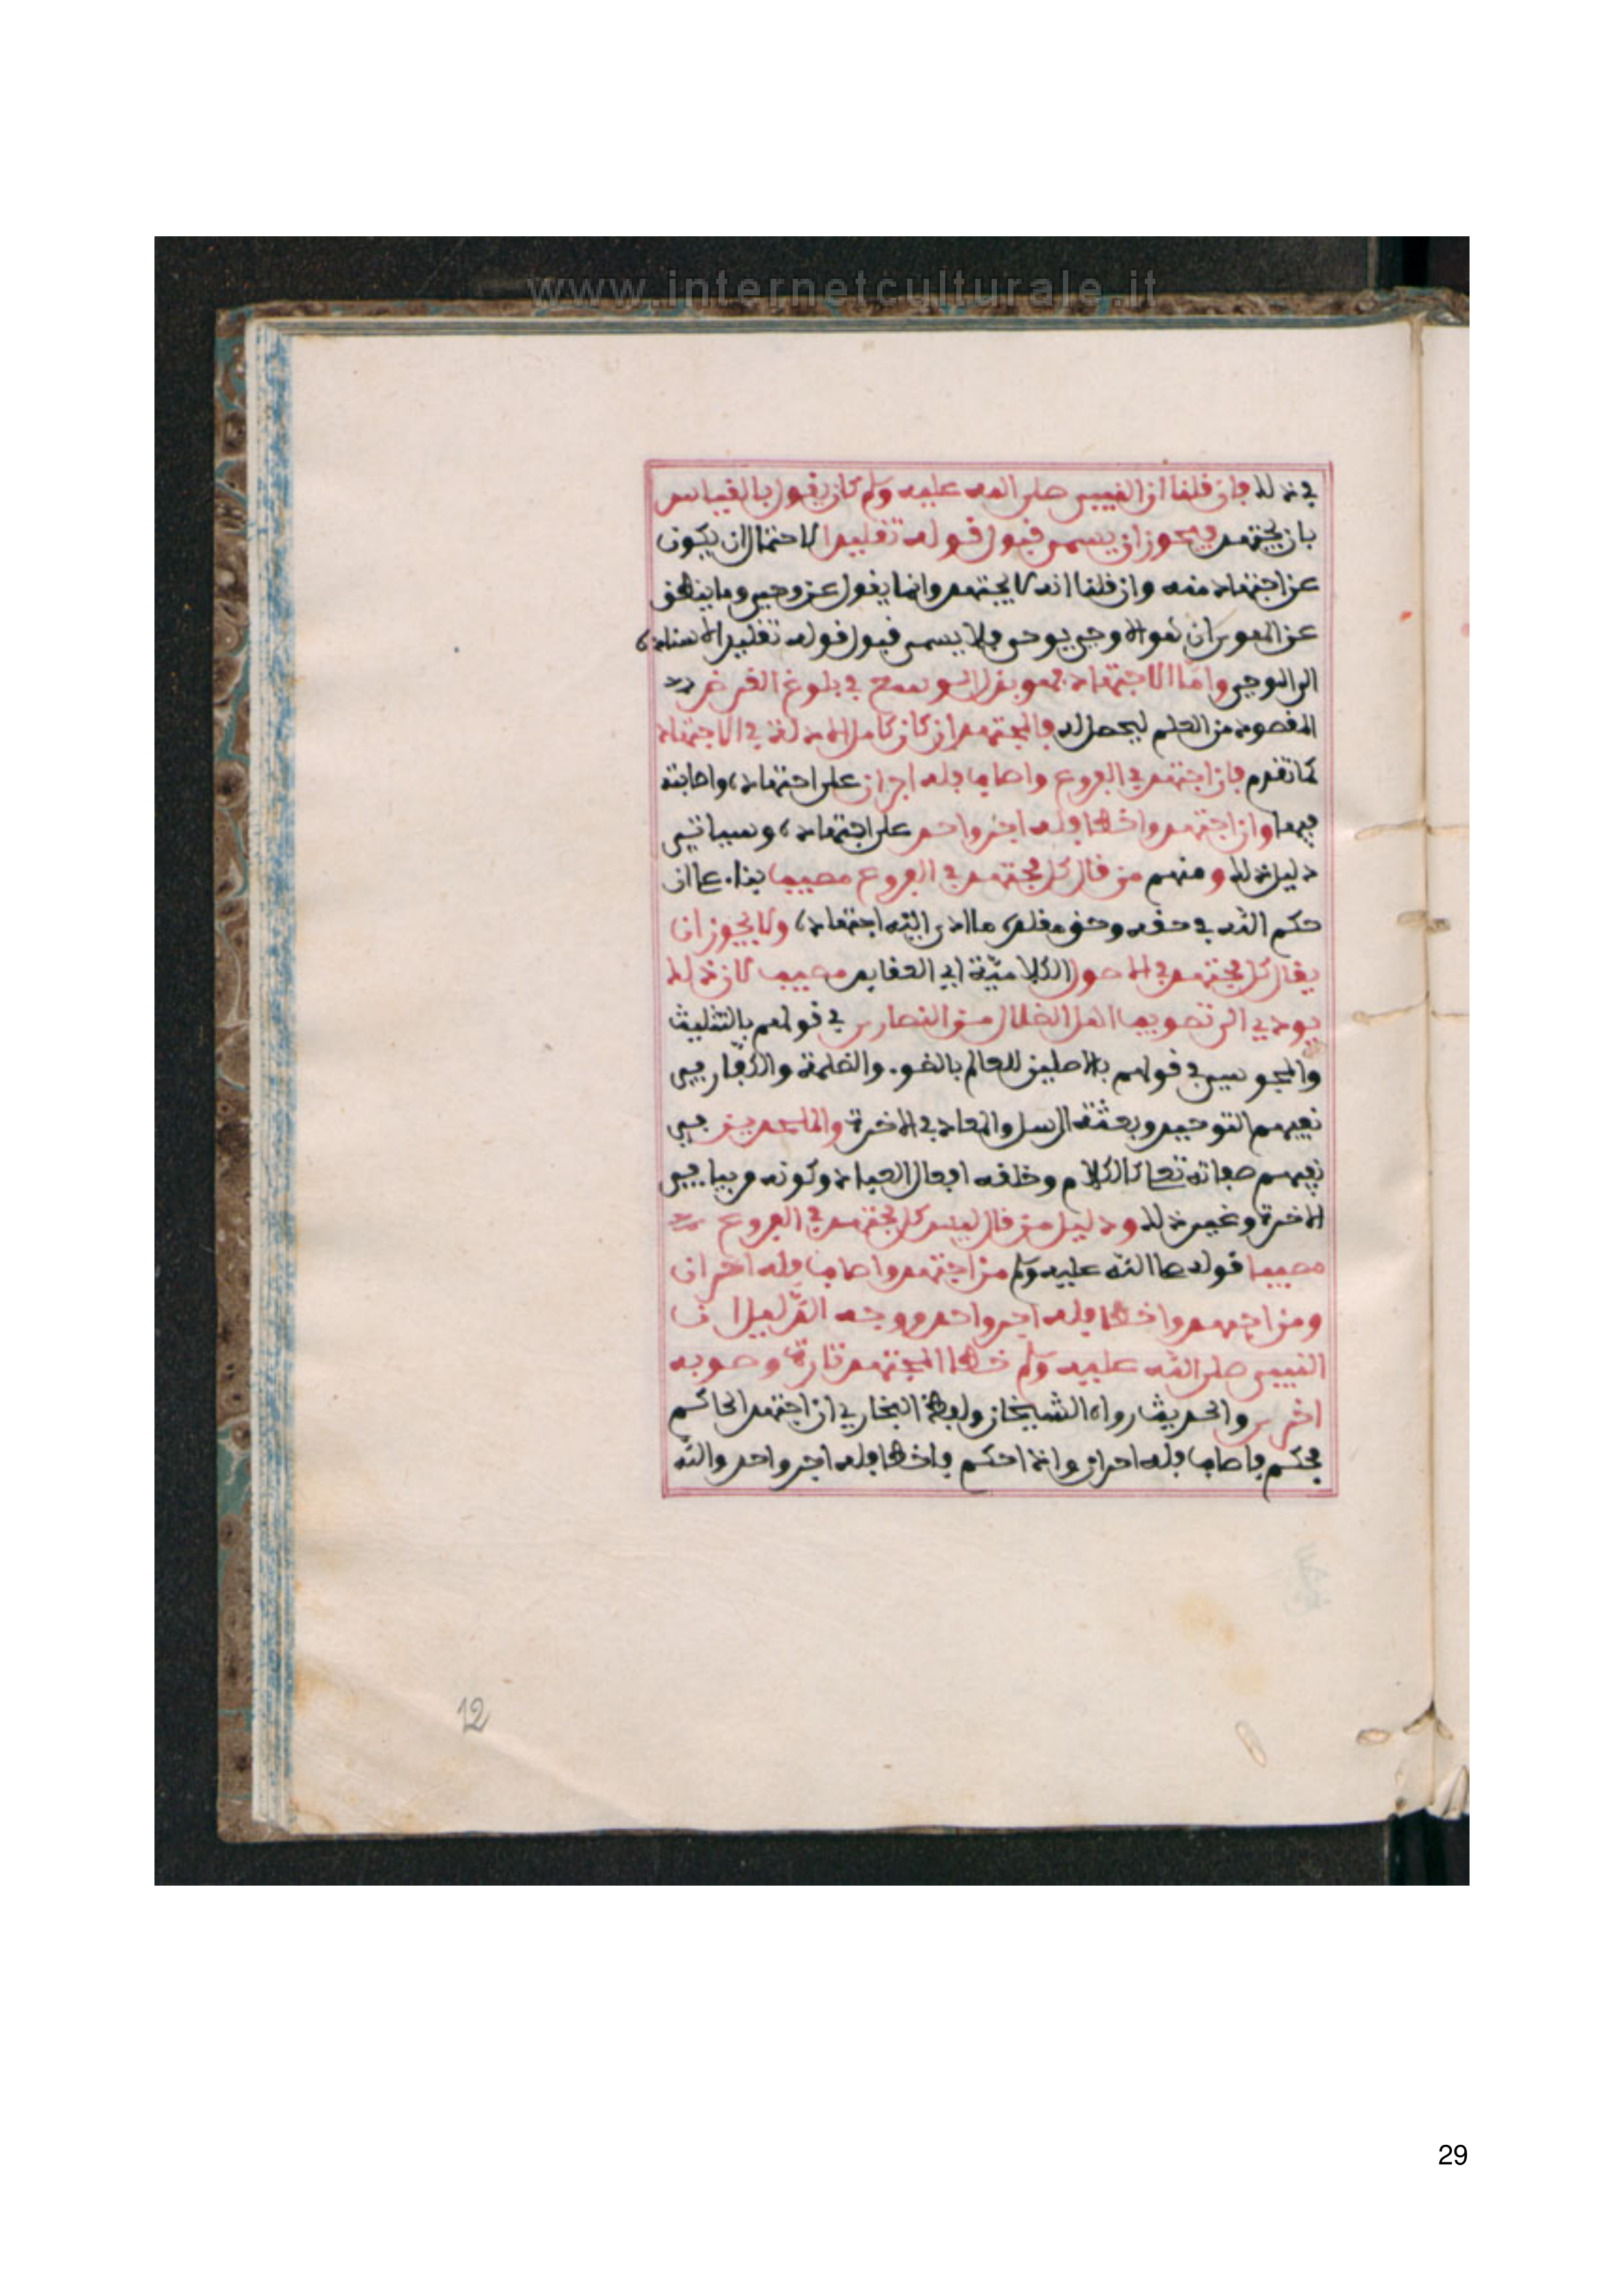 www.internetculturale.it
في ذلك فان قلنا ان النبيي صلى الله عليه وسلم كان يقول بالقياس
بان يجتهد فيجوز ان يسمى قبول قوله تقليدا لاحتمال ان يكون
عن اجتهاد منه وان قلنا انه لا يجتهد وانما يقول عن وحي وما ينطق
عن الهوى ان هو الا وحي يوحى فلا يسمى قبول قوله تقليدا لاسناده
الى الوحي واما الاجتهاد فهو بذل الوسع في بلوغ الغرض
المقصود من العلم ليحصل له فالمجتهد ان كان كامل الادلة في الاجتهاد
كما تقدم فان اجتهد في الفروع واصاب فله اجران على اجتهاده واصابته
فيها وان اجتهد واخطا فله اجر واحد على اجتهاده وسياتي
دليل ذلك ومنهم من قال كل مجتهد في الفروع مصيب بناء على ان
حكم الله في حقه وحق مقلده ما ادى اليه اجتهاده ولا يجوز ان
يقال كل مجتهد في الاصول الكلامية اي العقايد مصيب لان ذلك
يودي الى تصويب اهل الضلال من النصارى في قولهم بالتثليث
والمجوس في قولهم بالاصلين للعالم بالنور والظلمة والكفار في
نفيهم التوحيد وبعثة الرسل والمعاد في الاخرة والملحدين في
نفيهم صفاته تعالى كالكلام وخلقه افعال العباد وكونه مرييا في
الاخرة وغير ذلك ودليل من قال ليس كل مجتهد في الفروع
مصيبا قوله صلى الله عليه وسلم من اجتهد واصاب فله اجران
ومن اجتهد واخطا فله اجر واحد ووجه الدليل ان
النبيي صلى الله عليه وسلم خطا المجتهد تارة وصوبه
اخرى والحديث رواه الشيخان ولفظ البخاري اذا اجتهد الحاكم
فحكم فاصاب فله اجران واذا حكم فاخطا فله اجر واحد والله
12
29